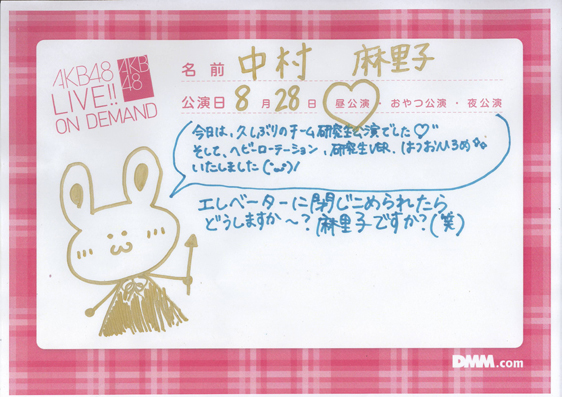 AKB48
LIVE!!
ON DEMAND
AKB
48
名前 中村 麻里子
公演日 8月28日 昼公演・おやつ公演・夜公演
今日は、久しぶりのチーム研究生公演でした♡"
そして、ヘビーローテーション、研究生VER.はつおひろめ
いたしました(^ω^)/
エレベーターに閉じこめられたら
どうしますか〜?麻里子ですか?(笑)
DMM.com